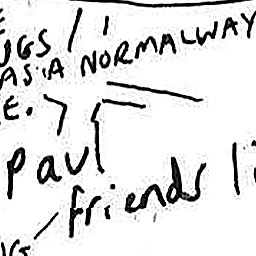 UGS /
AS A NORMAL WAY
E.
Paul
friends